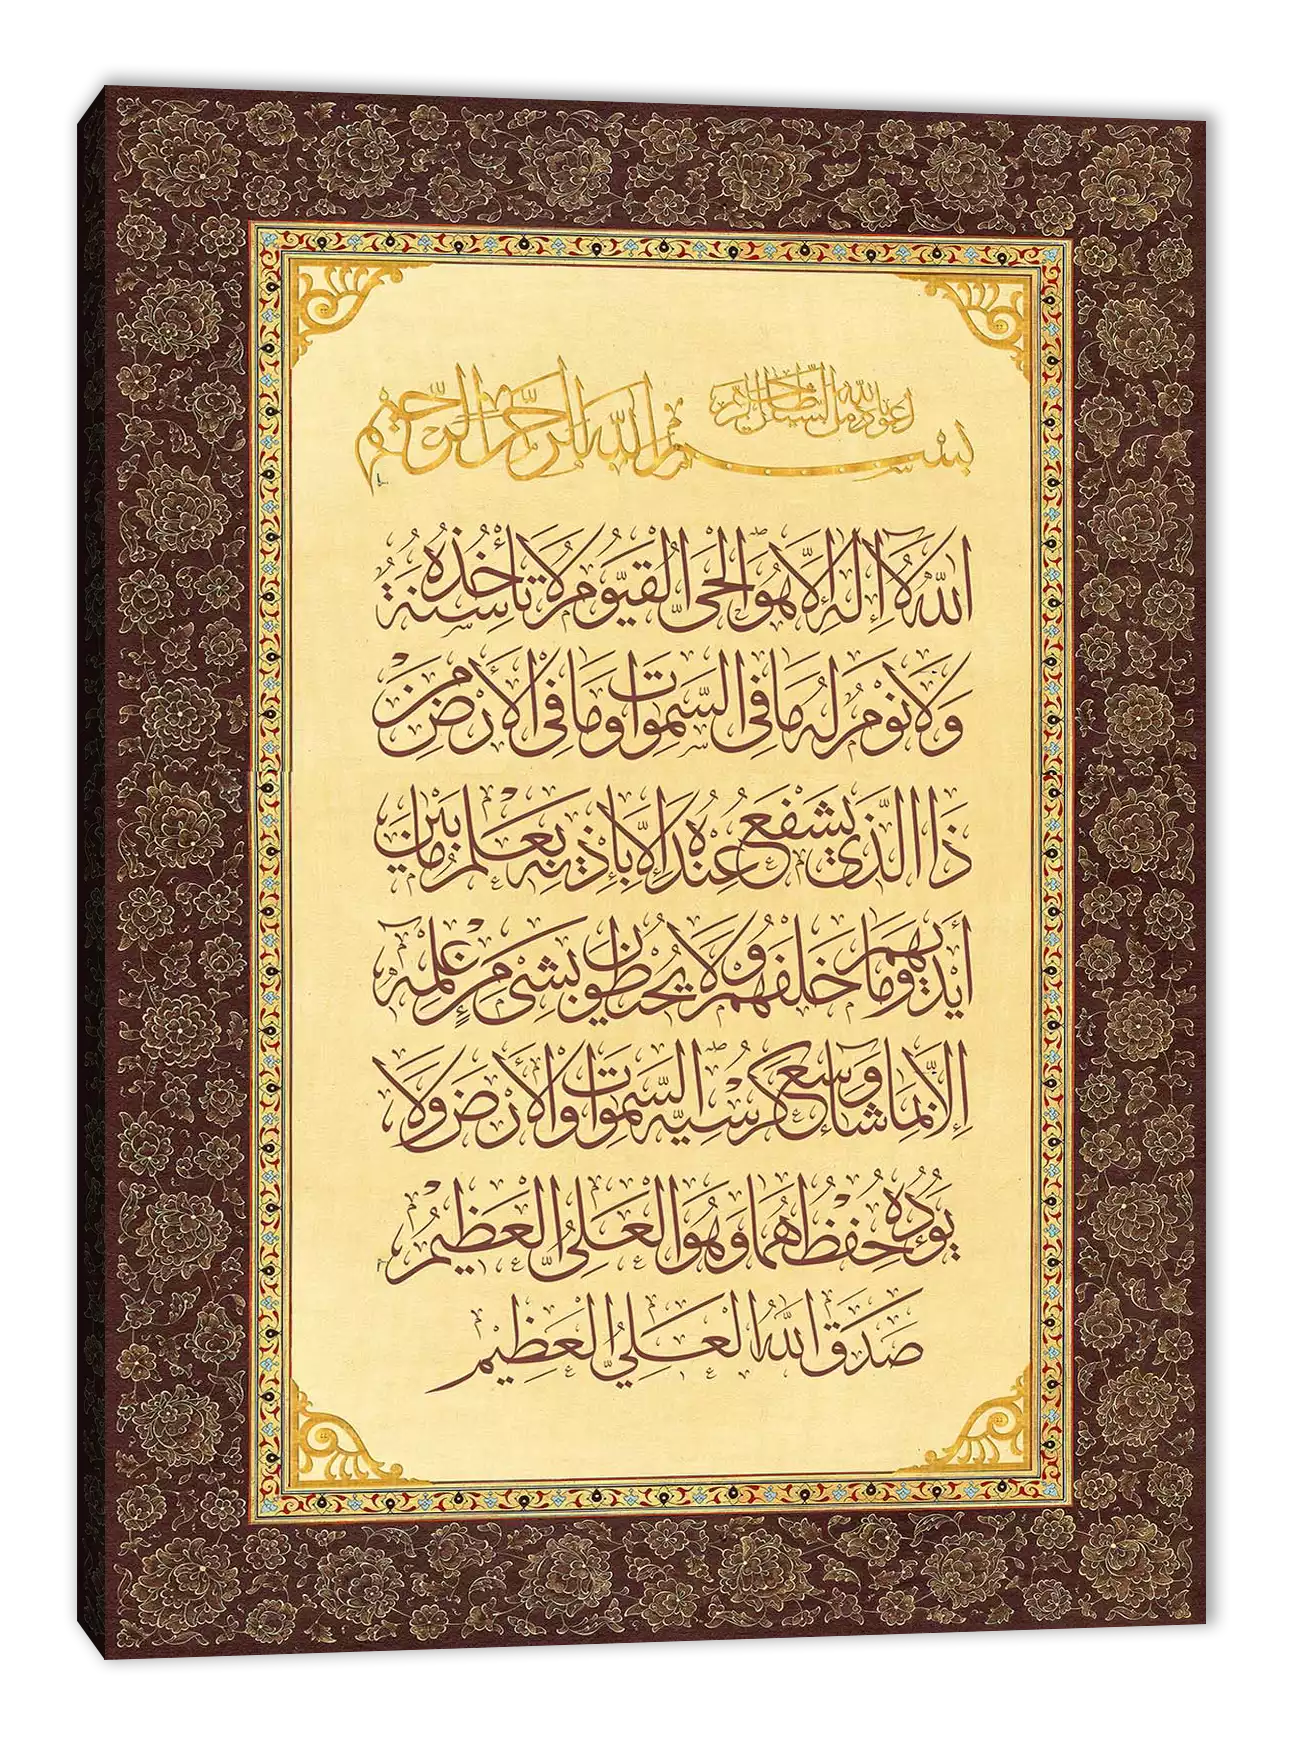 اعوذ بالله من الشيطان الرجيم
بسم الله الرحمن الرحيم
اَللّٰهُ لَآ اِلٰهَ اِلَّا هُوَ الْحَیُّ الْقَيُّومُ لَا تَأْخُذُهُ سِنَةٌ
وَلَا نَوْمٌ لَهُ مَا فِی السَّمٰوَاتِ وَمَا فِی الْاَرْضِ مَنْ
ذَا الَّذِی يَشْفَعُ عِنْدَهُ اِلَّا بِاِذْنِهِ يَعْلَمُ مَا بَيْنَ
اَيْدِيهِمْ وَمَا خَلْفَهُمْ وَلَا يُحِيطُونَ بِشَیْءٍ مِنْ عِلْمِهِ
اِلَّا بِمَا شَآءَ وَسِعَ كُرْسِيُّهُ السَّمٰوَاتِ وَالْاَرْضَ وَلَا
يَؤُدُهُ حِفْظُهُمَا وَهُوَ الْعَلِیُّ الْعَظِيمُ
صَدَقَ اللّٰهُ الْعَلِیُّ الْعَظِيمُ